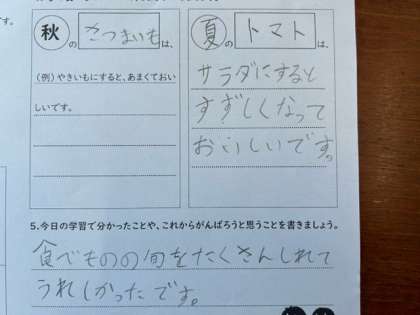 です。
秋の さつまいも は、
(例)やきいもにすると、あまくておい
しいです。
夏の トマト は、
サラダにすると
すずしくなって
おいしいです。
5.今日の学習で分かったことや、これからがんばろうと思うことを書きましょう。
食べものの旬をたくさんしれて
うれしかったです。